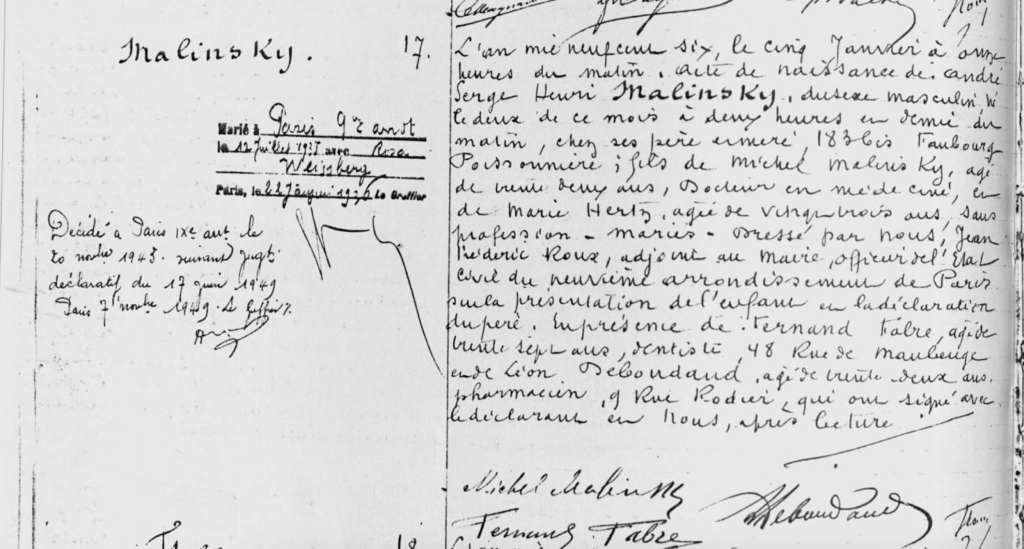 Malinsky.
17.
Marié à Paris 9e arrdt
le 12 Juillet avec Rosa
Weissberg
Paris, le 22 Janvier 1936 Le Greffier
Décédé à Paris IXe arrt le
novbre 1945 suivant jugt
déclaratif du 17 juin 1949
Paris 7 novbre 1949. Le
L'an mil neufcent six, le cinq Janvier à onze
heures du matin. acte de naissance de. andré
Serge Henri Malinsky, du sexe masculin, né
le deux de ce mois à deux heures et demie du
matin, chez ses père et mère, 183 bis Faubourg
Poissonnière; fils de Michel Malinsky, agé
de trente deux ans, Docteur en médecine, et
de Marie Hertz, agée de vingt trois ans, sans
profession - mariés - Dressé par Nous, Jean
Fréderic Roux, adjoint au Maire, officier de l'Etat
Civil du neuvième arrondissement de Paris
sur la présentation de l'enfant et la déclaration
du père. En présence de Fernand Fabre, agé de
trente sept ans, dentiste, 48 Rue de Maubeuge
et de Léon Deboudaud, agé de trente deux ans,
pharmacien, 9 Rue Rodier, qui ont signé avec
le déclarant et Nous, après lecture
Michel Malinsky
Fernand Fabre
18